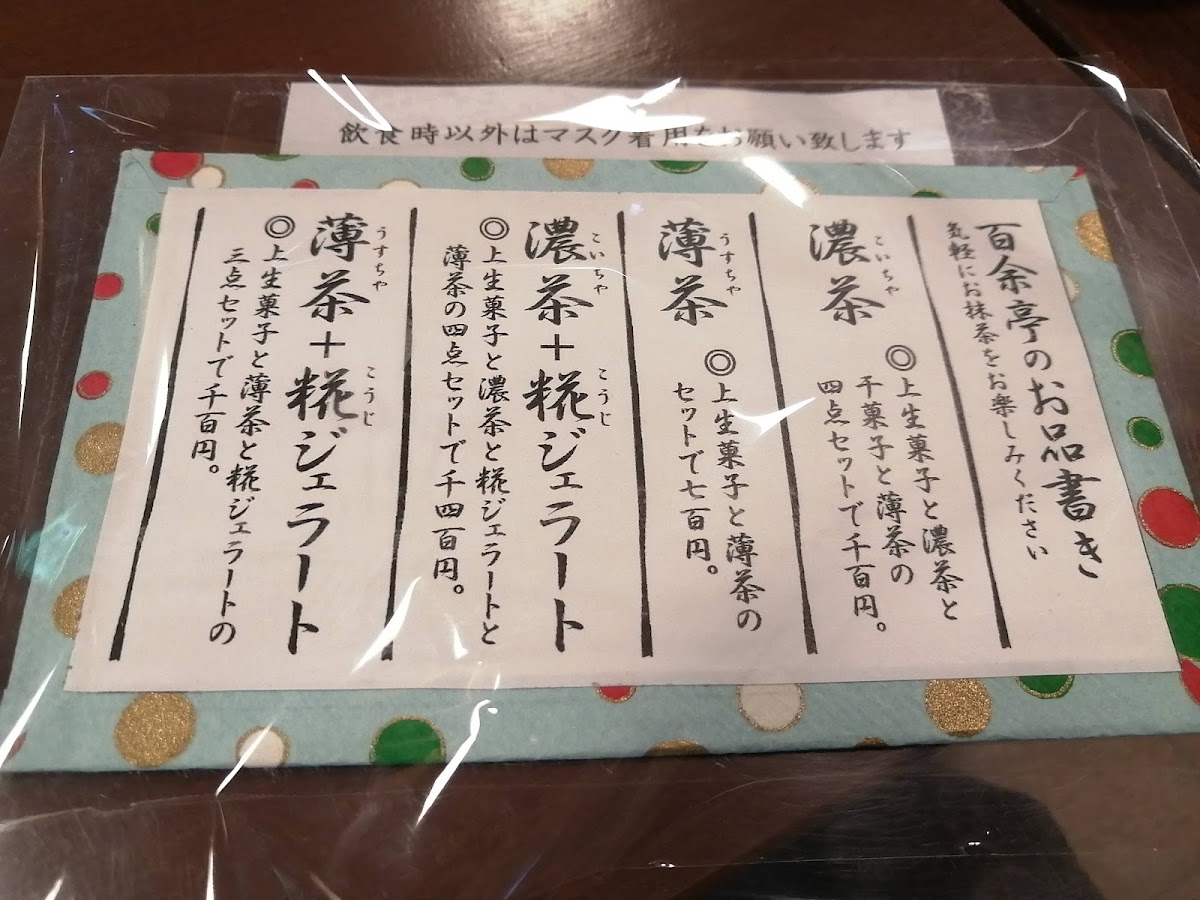 飲食時以外はマスク着用をお願い致します
百余亭のお品書き
気軽にお抹茶をお楽しみください
こいちゃ
濃茶
◎上生菓子と濃茶と
干菓子と薄茶の
四点セットで千百円。
うすちゃ
薄茶
◎上生菓子と薄茶の
セットで七百円。
こいちゃ こうじ
濃茶+糀ジェラート
◎上生菓子と濃茶と糀ジェラートと
薄茶の四点セットで千四百円。
うすちゃ こうじ
薄茶+糀ジェラート
◎上生菓子と薄茶と糀ジェラートの
三点セットで千百円。